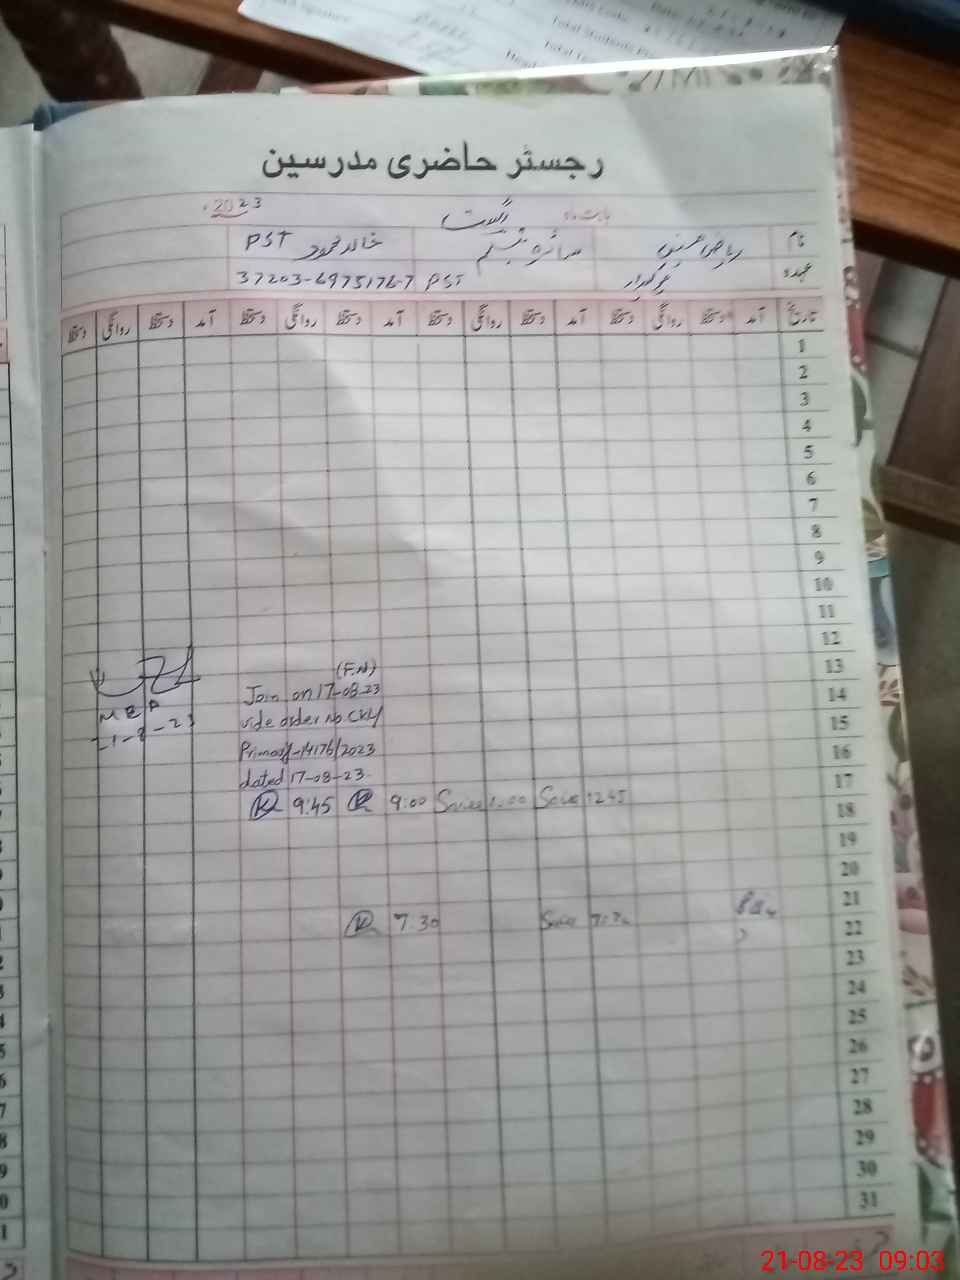 رجسٹر حاضری مدرسین
بابت ماہ اگست 2023ء
نام
خالد محمود PST
عہدہ چوکیدار PST 37203-6975176-7
تاریخ آمد دستخط روانگی دستخط آمد دستخط روانگی دستخط آمد دستخط روانگی دستخط آمد دستخط روانگی دستخط
1
2
3
4
5
6
7
8
9
10
11
12
13
(F.N)
Join on 17-08-23
14
MEA
vide order No. CKL/
15
21-8-23
Primary-14176/2023
16
dated 17-08-23
17
9:45 9:00 1.00 1245
18
19
20
21
7.30
22
23
24
25
26
27
28
29
30
31
21-08-23 09:03